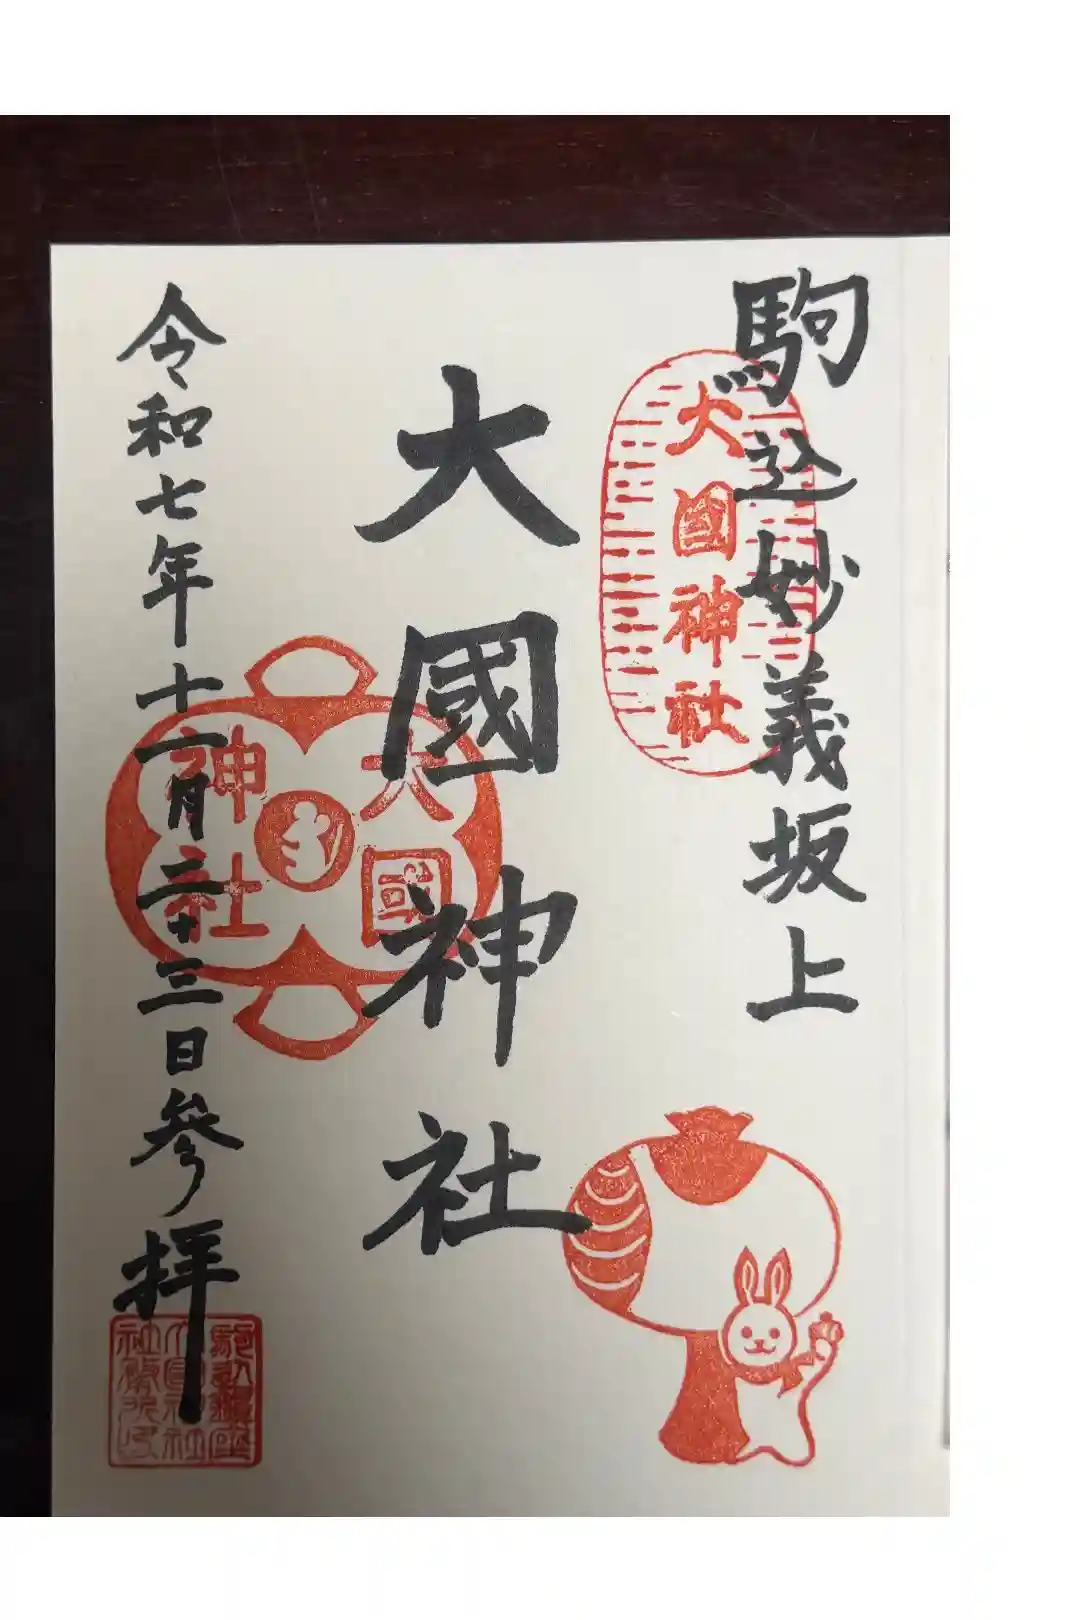 駒込妙義坂上
大國神社
大國神社
大國
神社
令和七年十一月二十三日參拝